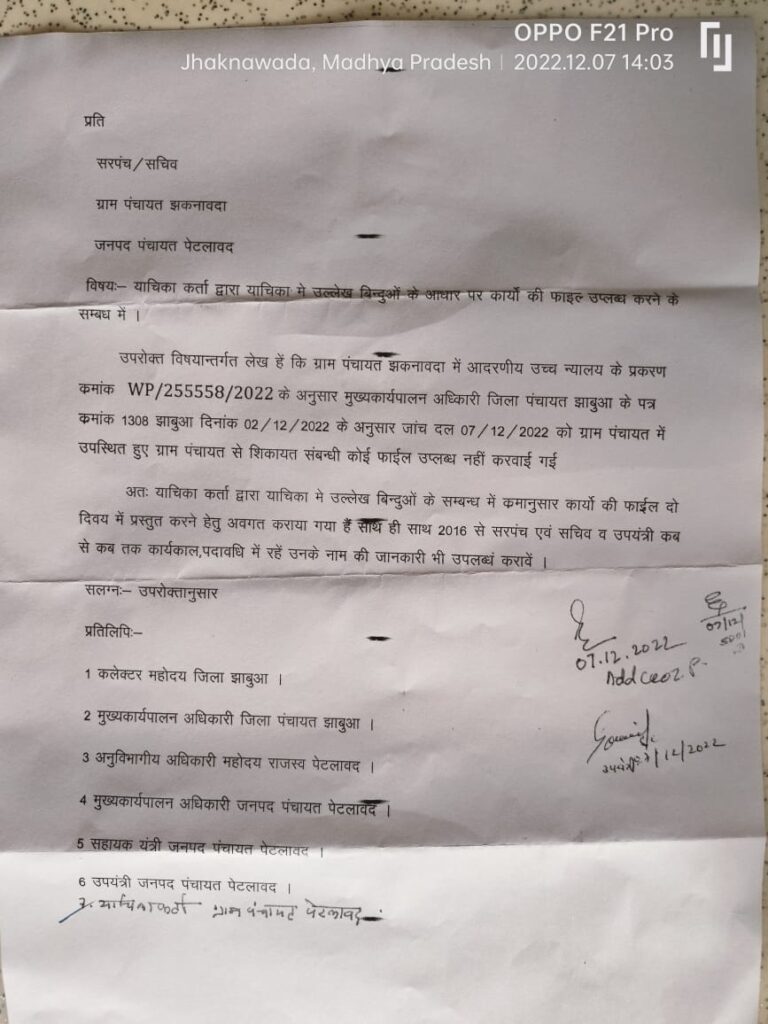 OPPO F21 Pro
Jhaknawada, Madhya Pradesh | 2022.12.07 14:03
प्रति
सरपंच/सचिव
ग्राम पंचायत झकनावदा
जनपद पंचायत पेटलावद
विषयः– याचिका कर्ता द्वारा याचिका मे उल्लेख बिन्दुओं के आधार पर कार्यो की फाइल उप्लब्ध करने के
सम्बध में ।
उपरोक्त विषयान्तर्गत लेख हें कि ग्राम पंचायत झकनावदा में आदरणीय उच्च न्यालय के प्रकरण
कमांक WP/255558/2022 के अनुसार मुख्यकार्यपालन अध्किारी जिला पंचायत झाबुआ के पत्र
कमांक 1308 झाबुआ दिनांक 02/12/2022 के अनुसार जांच दल 07/12/2022 को ग्राम पंचायत में
उपस्थित हुए ग्राम पंचायत से शिकायत संबन्धी कोई फाईल उप्लब्ध नहीं करवाई गई
अतः याचिका कर्ता द्वारा याचिका मे उल्लेख बिन्दुओं के सम्बन्ध में कमानुसार कार्यो की फाईल दो
दिवय में प्रस्तुत करने हेतु अवगत कराया गया हैं साथ ही साथ 2016 से सरपंच एवं सचिव व उपयंत्री कब
से कब तक कार्यकाल,पदावधि में रहें उनके नाम की जानकारी भी उपलब्धं करावें ।
सलग्नः– उपरोक्तानुसार
प्रतिलिपिः–
07/12/
07.12.2022
Add CEO Z.P.
1 कलेक्टर महोदय जिला झाबुआ ।
2 मुख्यकार्यपालन अधिकारी जिला पंचायत झाबुआ ।
उपयंत्री 7/12/2022
3 अनुविभागीय अधिकारी महोदय राजस्व पेटलावद ।
4 मुख्यकार्यपालन अधिकारी जनपद पंचायत पेटलावद ।
5 सहायक यंत्री जनपद पंचायत पेटलावद ।
6 उपयंत्री जनपद पंचायत पेटलावद ।
7. याचिकाकर्ता ग्राम पंचायत पेटलावद